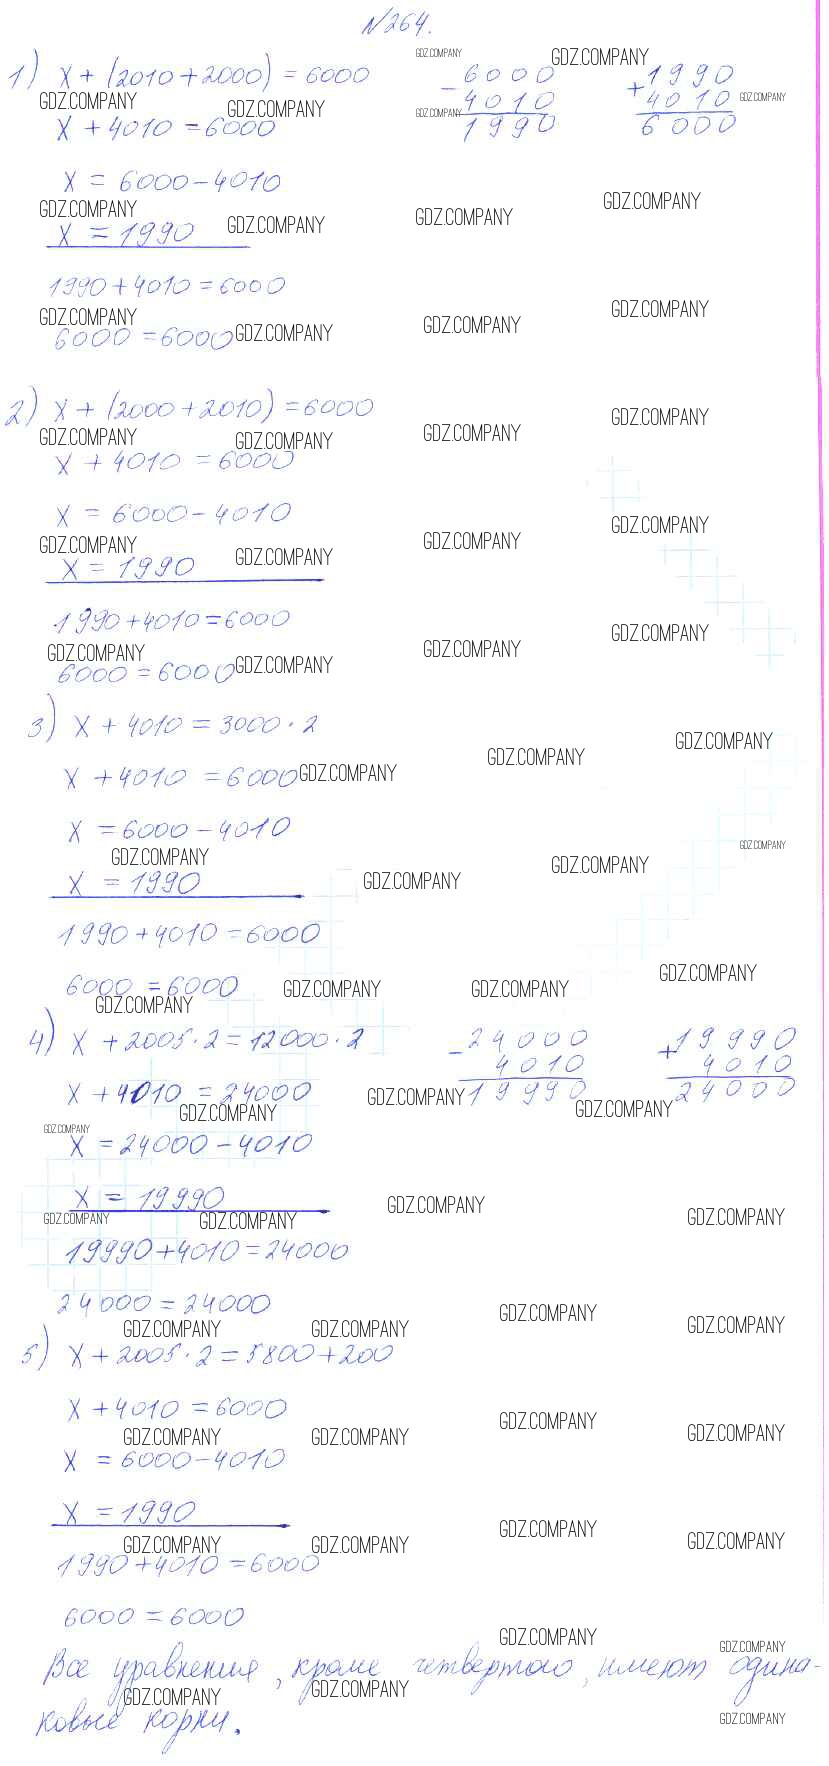 №264.
1) x + (2010 + 2000) = 6000
x + 4010 = 6000
x = 6000 - 4010
x = 1990
1990 + 4010 = 6000
6000 = 6000
- 6000
4010
1990
+ 1990
4010
6000
2) x + (2000 + 2010) = 6000
x + 4010 = 6000
x = 6000 - 4010
x = 1990
1990 + 4010 = 6000
6000 = 6000
3) x + 4010 = 3000 · 2
x + 4010 = 6000
x = 6000 - 4010
x = 1990
1990 + 4010 = 6000
6000 = 6000
4) x + 2005 · 2 = 12000 · 2
x + 4010 = 24000
x = 24000 - 4010
x = 19990
19990 + 4010 = 24000
24000 = 24000
- 24000
4010
19990
+ 19990
4010
24000
5) x + 2005 · 2 = 5800 + 200
x + 4010 = 6000
x = 6000 - 4010
x = 1990
1990 + 4010 = 6000
6000 = 6000
Все уравнения, кроме четвертого, имеют одина-
ковые корни.
GDZ.COMPANY